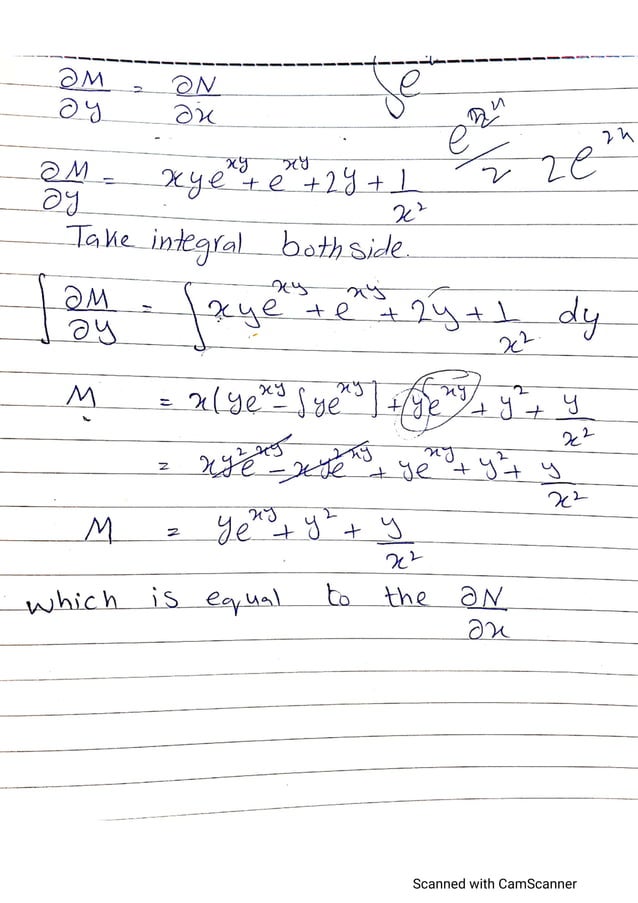 ∂M/∂y = ∂N/∂x
∫e
e^2x/2 2e^2x
∂M/∂y = xye^xy + e^xy + 2y + 1/x²
Take integral both side.
∫ ∂M/∂y = ∫ xye^xy + e^xy + 2y + 1/x² dy
M = x[ye^xy - ∫ye^xy] + ye^xy + y² + y/x²
= xy²e^xy - xy²e^xy + ye^xy + y² + y/x²
M = ye^xy + y² + y/x²
which is equal to the ∂N/∂x
Scanned with CamScanner